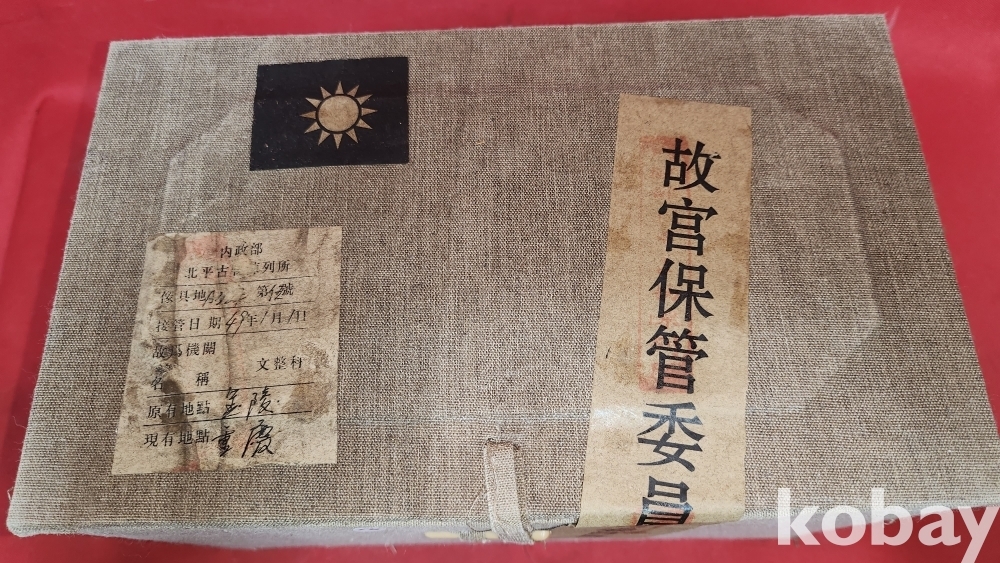 內政部
北平古 列所
傢具地 第 號
接管日期49年1月1日
故 機關
文整科
名稱
原有地點 金陵
現有地點 重慶
故宮保管委員
kobay